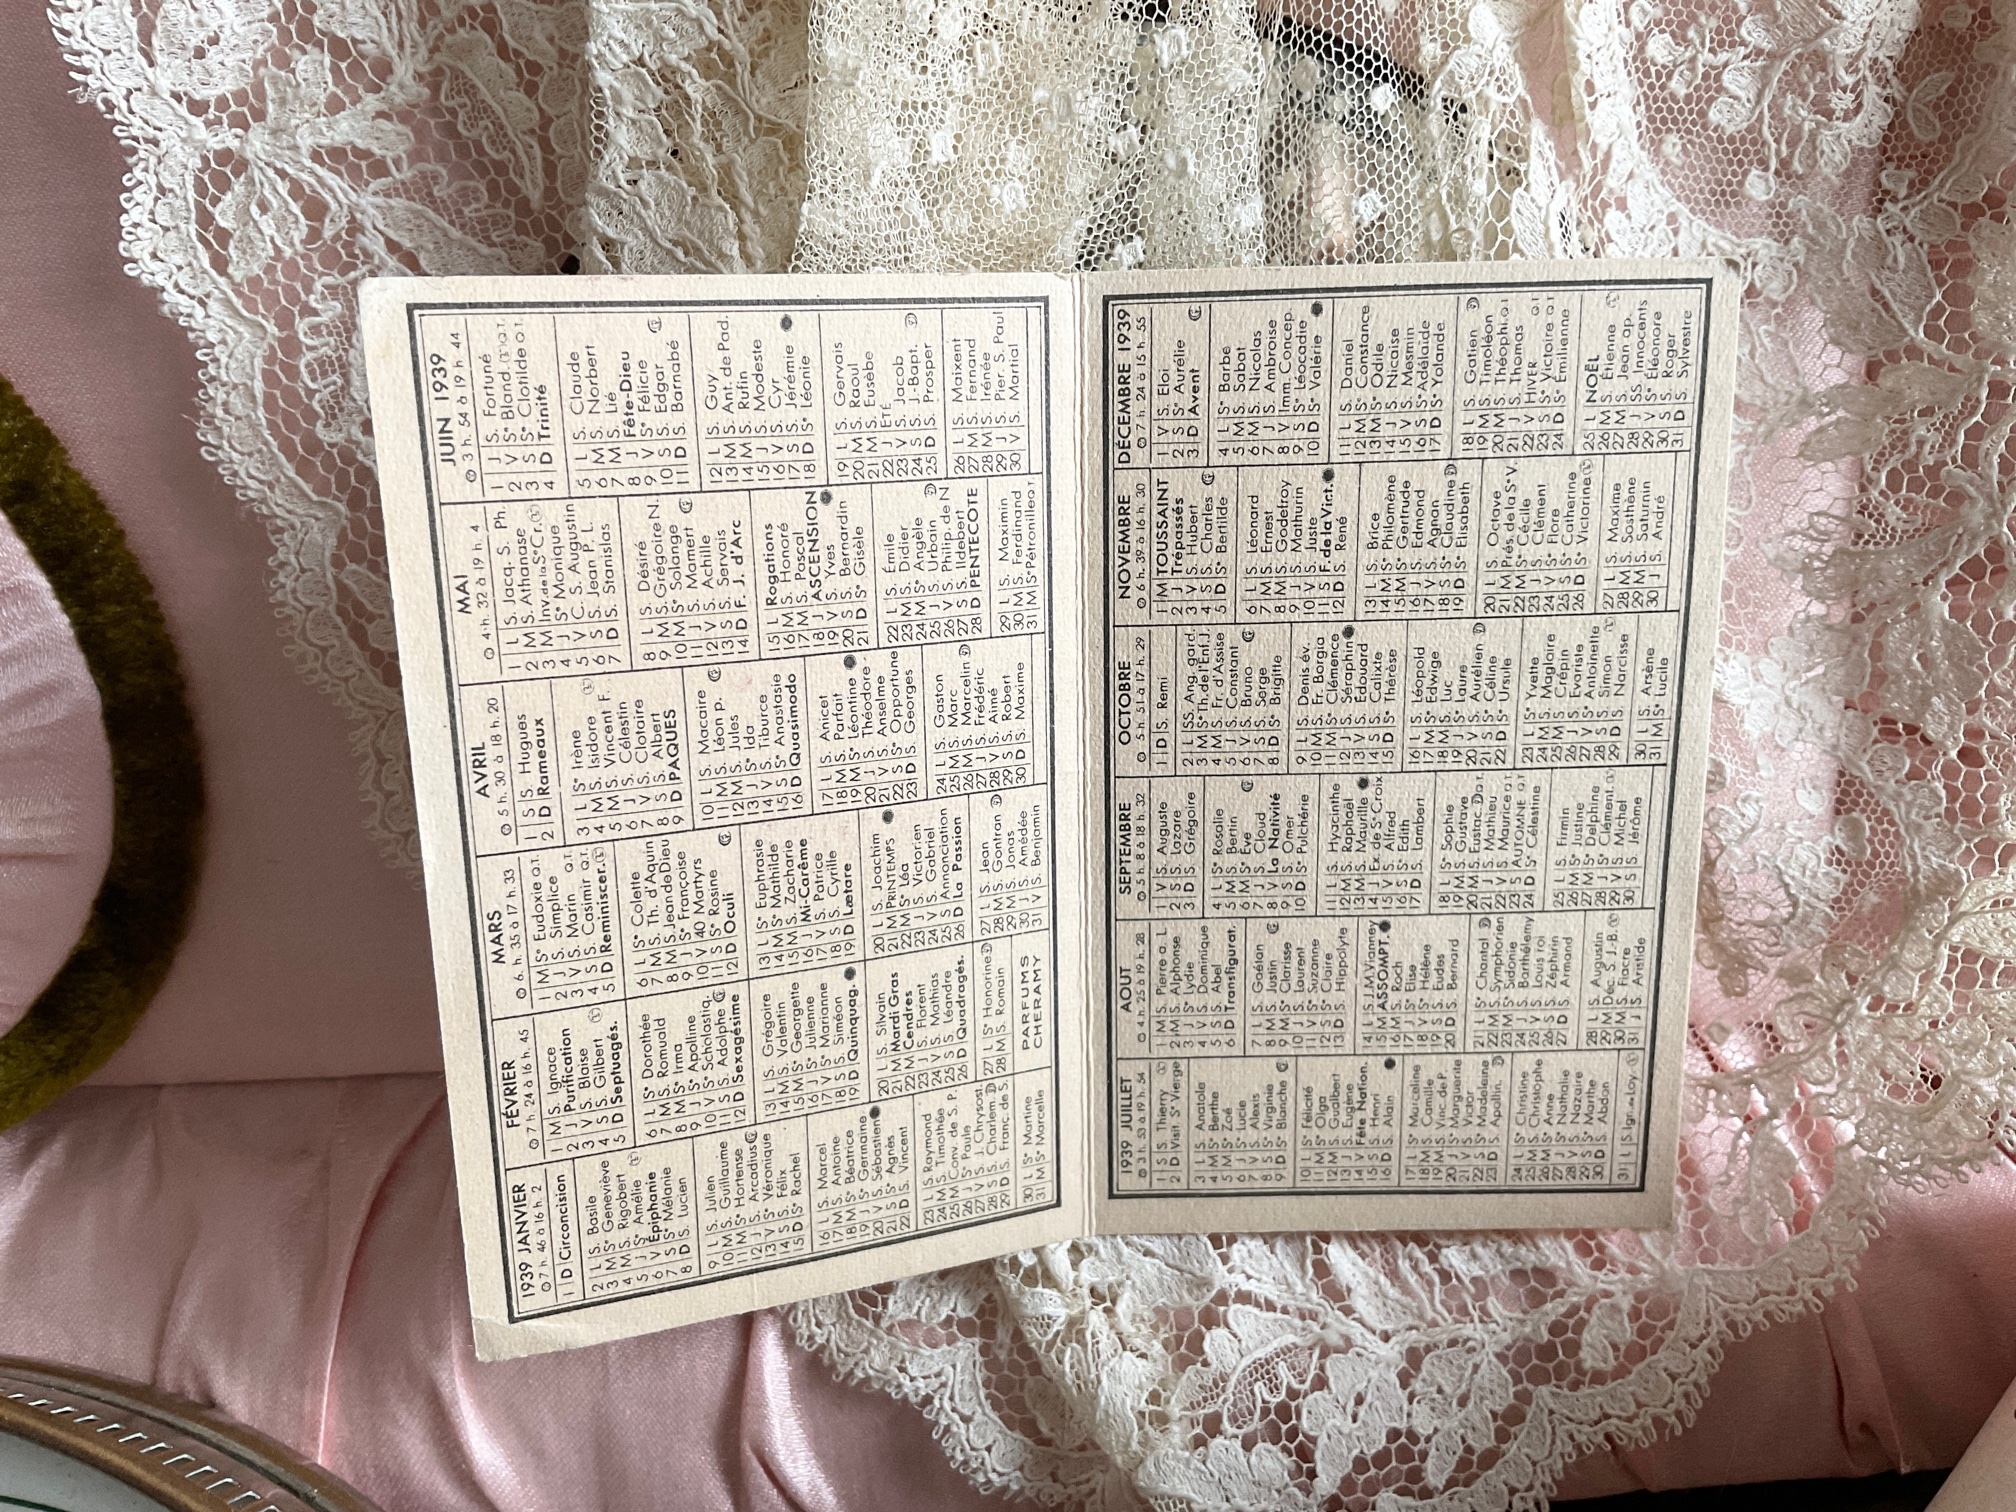 1939 JANVIER
7 h. 46 à 16 h. 2
1 D Circoncision
2 L S. Basile
3 M Sᵉ Geneviève
4 M S. Rigobert
5 J Sᵉ Amélie
6 V Épiphanie
7 S Sᵉ Mélanie
8 D S. Lucien
9 L S. Julien
10 M S. Guillaume
11 M Sᵉ Hortense
12 J S. Arcadius
13 V Sᵉ Véronique
14 S S. Félix
15 D Sᵉ Rachel
16 L S. Marcel
17 M S. Antoine
18 M Sᵉ Béatrice
19 J Sᵉ Germaine
20 V S. Sébastien
21 S Sᵉ Agnès
22 D S. Vincent
23 L S. Raymond
24 M S. Timothée
25 M Conv. de S. P.
26 J Sᵉ Paule
27 V S. J. Chrysost.
28 S S. Charlem.
29 D S. Franc. de S.
30 L Sᵉ Martine
31 M Sᵉ Marcelle
FÉVRIER
7 h. 24 à 16 h. 45
1 M S. Ignace
2 J Purification
3 V S. Blaise
4 S S. Gilbert
5 D Septuagés.
6 L Sᵉ Dorothée
7 M S. Romuald
8 M Sᵉ Irma
9 J Sᵉ Apolline
10 V Sᵉ Scholastiq.
11 S S. Adolphe
12 D Sexagésime
13 L S. Grégoire
14 M S. Valentin
15 M Sᵉ Georgette
16 J Sᵉ Julienne
17 V Sᵉ Marianne
18 S S. Siméon
19 D Quinquag.
20 L S. Silvain
21 M Mardi Gras
22 M Cendres
23 J S. Florent
24 V S. Mathias
25 S S. Léandre
26 D Quadragés.
27 L Sᵉ Honorine
28 M S. Romain
PARFUMS
CHERAMY
MARS
6 h. 35 à 17 h. 33
1 M Sᵉ Eudoxie Q.T.
2 J S. Simplice
3 V S. Marin Q.T.
4 S S. Casimir Q.T.
5 D Reminiscer.
6 L Sᵉ Colette
7 M S. Th. d'Aquin
8 M S. Jean de Dieu
9 J Sᵉ Françoise
10 V 40 Martyrs
11 S Sᵉ Rosine
12 D Oculi
13 L Sᵉ Euphrasie
14 M Sᵉ Mathilde
15 M S. Zacharie
16 J Mi-Carême
17 V S. Patrice
18 S S. Cyrille
19 D Lætare
20 L S. Joachim
21 M PRINTEMPS
22 M Sᵉ Léa
23 J S. Victorien
24 V S. Gabriel
25 S Annonciation
26 D La Passion
27 L S. Jean
28 M S. Gontran
29 M S. Jonas
30 J S. Amédée
31 V S. Benjamin
AVRIL
5 h. 30 à 18 h. 20
1 S S. Hugues
2 D Rameaux
3 L Sᵉ Irène
4 M S. Isidore
5 M S. Vincent F.
6 J S. Célestin
7 V S. Clotaire
8 S S. Albert
9 D PAQUES
10 L S. Macaire
11 M S. Léon p.
12 M S. Jules
13 J Sᵉ Ida
14 V S. Tiburce
15 S Sᵉ Anastasie
16 D Quasimodo
17 L S. Anicet
18 M S. Parfait
19 M Sᵉ Léontine
20 J S. Théodore
21 V S. Anselme
22 S Sᵉ Opportune
23 D S. Georges
24 L S. Gaston
25 M S. Marc
26 M S. Marcelin
27 J S. Frédéric
28 V S. Aimé
29 S S. Robert
30 D S. Maxime
MAI
4 h. 32 à 19 h. 4
1 L S. Jacq. S. Ph.
2 M S. Athanase
3 M Inv. de la Sᵉ Cr.
4 J Sᵉ Monique
5 V C. S. Augustin
6 S S. Jean P. L.
7 D S. Stanislas
8 L S. Désiré
9 M S. Grégoire N.
10 M Sᵉ Solange
11 J S. Mamert
12 V S. Achille
13 S S. Servais
14 D F. J. d'Arc
15 L Rogations
16 M S. Honoré
17 M S. Pascal
18 J ASCENSION
19 V S. Yves
20 S S. Bernardin
21 D Sᵉ Gisèle
22 L S. Émile
23 M S. Didier
24 M Sᵉ Angèle
25 J S. Urbain
26 V S. Philip. de N
27 S S. Ildebert
28 D PENTECOTE
29 L S. Maximin
30 M S. Ferdinand
31 M Sᵉ Pétronille Q T
JUIN 1939
3 h. 54 à 19 h. 44
1 J S. Fortuné
2 V Sᵉ Bland. Q.T.
3 S Sᵉ Clotilde Q.T.
4 D Trinité
5 L S. Claude
6 M S. Norbert
7 M S. Lié
8 J Fête-Dieu
9 V Sᵉ Félicie
10 S S. Edgar
11 D S. Barnabé
12 L S. Guy
13 M S. Ant. de Pad.
14 M S. Rufin
15 J S. Modeste
16 V S. Cyr
17 S S. Jérémie
18 D Sᵉ Léonie
19 L S. Gervais
20 M S. Raoul
21 M S. Eusèbe
22 J ÉTÉ
23 V S. Jacob
24 S S. J.-Bapt.
25 D S. Prosper
26 L S. Maixent
27 M S. Fernand
28 M S. Irénée
29 J S. Pier. S. Paul
30 V S. Martial
1939 JUILLET
3 h. 53 à 19 h. 54
1 S S. Thierry
2 D Visit. Sᵉ Vierge
3 L S. Anatole
4 M Sᵉ Berthe
5 M Sᵉ Zoé
6 J Sᵉ Lucie
7 V S. Alexis
8 S Sᵉ Virginie
9 D Sᵉ Blanche
10 L Sᵉ Félicité
11 M Sᵉ Olga
12 M S. Gualbert
13 J S. Eugène
14 V Fête Nation.
15 S S. Henri
16 D S. Alain
17 L Sᵉ Marceline
18 M S. Camille
19 M S. Vinc. de P.
20 J Sᵉ Marguerite
21 V S. Victor
22 S Sᵉ Madeleine
23 D S. Apollin.
24 L Sᵉ Christine
25 M S. Christophe
26 M Sᵉ Anne
27 J Sᵉ Nathalie
28 V S. Nazaire
29 S Sᵉ Marthe
30 D S. Abdon
31 L S. Ign. de Loy.
AOUT
4 h. 25 à 19 h. 28
1 M S. Pierre a. L.
2 M S. Alphonse
3 J Sᵉ Lydie
4 V S. Dominique
5 S S. Abel
6 D Transfigurat.
7 L S. Gaétan
8 M S. Justin
9 M Sᵉ Clarisse
10 J S. Laurent
11 V Sᵉ Suzanne
12 S Sᵉ Claire
13 D S. Hippolyte
14 L S. J.M. Vianney
15 M ASSOMPT.
16 M S. Roch
17 J Sᵉ Elise
18 V Sᵉ Hélène
19 S S. Eudes
20 D S. Bernard
21 L Sᵉ Chantal
22 M S. Symphorien
23 M S. Sidonie
24 J S. Barthélemy
25 V S. Louis roi
26 S S. Zéphirin
27 D S. Armand
28 L S. Augustin
29 M Déc. S. J.-B.
30 M S. Fiacre
31 J S. Aristide
SEPTEMBRE
5 h. 8 à 18 h. 32
1 V S. Auguste
2 S S. Lazare
3 D S. Grégoire
4 L Sᵉ Rosalie
5 M S. Bertin
6 M Sᵉ Ève
7 J S. Cloud
8 V La Nativité
9 S S. Omer
10 D Sᵉ Pulchérie
11 L S. Hyacinthe
12 M S. Raphaël
13 M S. Maurille
14 J Ex. de Sᵉ Croix
15 V S. Alfred
16 S Sᵉ Edith
17 D S. Lambert
18 L Sᵉ Sophie
19 M S. Gustave
20 M S. Eustac. Q.T.
21 J S. Mathieu
22 V S. Maurice Q T
23 S AUTOMNE Q.T
24 D Sᵉ Célestine
25 L S. Firmin
26 M Sᵉ Justine
27 M Sᵉ Delphine
28 J S. Clément.
29 V S. Michel
30 S S. Jérôme
OCTOBRE
5 h. 51 à 17 h. 29
1 D S. Remi
2 L SS. Ang. gard.
3 M Sᵉ Th. de l'Enf. J.
4 M S. Fr. d'Assise
5 J S. Constant
6 V S. Bruno
7 S S. Serge
8 D Sᵉ Brigitte
9 L S. Denis év.
10 M S. Fr. Borgia
11 M Sᵉ Clémence
12 J S. Séraphin
13 V S. Edouard
14 S S. Calixte
15 D Sᵉ Thérèse
16 L S. Léopold
17 M Sᵉ Edwige
18 M S. Luc
19 J Sᵉ Laure
20 V S. Aurélien
21 S Sᵉ Céline
22 D Sᵉ Ursule
23 L Sᵉ Yvette
24 M S. Magloire
25 M S. Crépin
26 J S. Evariste
27 V Sᵉ Antoinette
28 S S. Simon
29 D S. Narcisse
30 L S. Arsène
31 M Sᵉ Lucile
NOVEMBRE
6 h. 39 à 16 h. 30
1 M TOUSSAINT
2 J Trépassés
3 V S. Hubert
4 S S. Charles
5 D Sᵉ Bertilde
6 L S. Léonard
7 M S. Ernest
8 M S. Godefroy
9 J S. Mathurin
10 V S. Juste
11 S F. de la Vict.
12 D S. René
13 L S. Brice
14 M Sᵉ Philomène
15 M Sᵉ Gertrude
16 J S. Edmond
17 V S. Agnan
18 S Sᵉ Claudine
19 D Sᵉ Elisabeth
20 L S. Octave
21 M Prés. de la Sᵉ V.
22 M Sᵉ Cécile
23 J S. Clément
24 V Sᵉ Flore
25 S Sᵉ Catherine
26 D Sᵉ Victorine
27 L S. Maxime
28 M S. Sosthène
29 M S. Saturnin
30 J S. André
DÉCEMBRE 1939
7 h. 24 à 15 h. 55
1 V S. Eloi
2 S Sᵉ Aurélie
3 D Avent
4 L Sᵉ Barbe
5 M S. Sabat
6 M S. Nicolas
7 J S. Ambroise
8 V Imm. Concep.
9 S Sᵉ Léocadie
10 D Sᵉ Valérie
11 L S. Daniel
12 M Sᵉ Constance
13 M Sᵉ Odile
14 J S. Nicaise
15 V S. Mesmin
16 S Sᵉ Adélaïde
17 D Sᵉ Yolande
18 L S. Gatien
19 M S. Timoléon
20 M S. Théophi. Q.T
21 J S. Thomas
22 V HIVER Q T
23 S Sᵉ Victoire Q.T
24 D Sᵉ Émilienne
25 L NOËL
26 M S. Étienne
27 M S. Jean ap.
28 J SS. Innocents
29 V Sᵉ Éléonore
30 S S. Roger
31 D S. Sylvestre